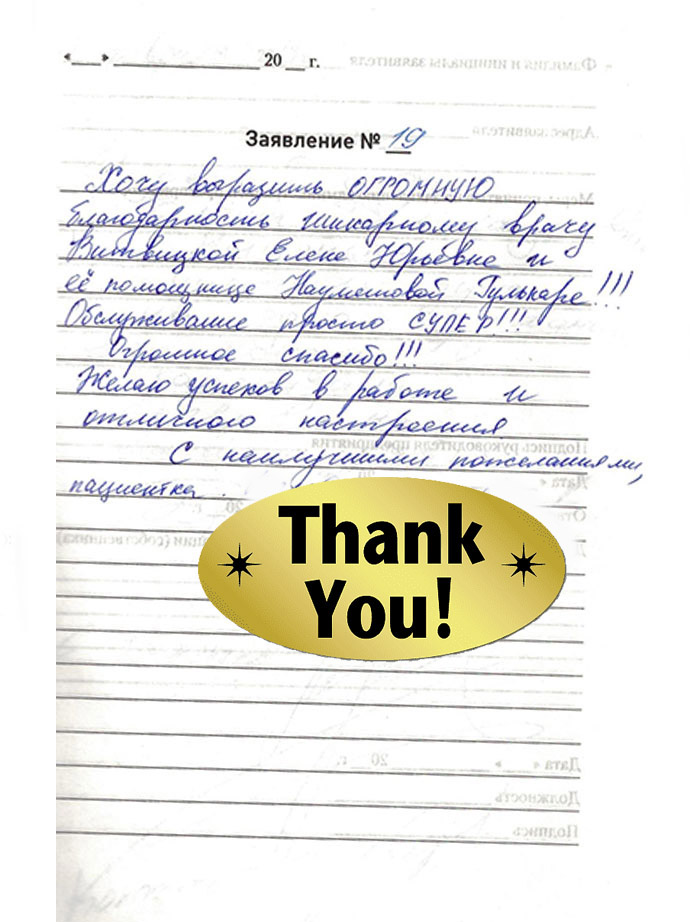 «___» ______________ 20 __ г.
Фамилия и инициалы заявителя
Адрес заявителя
Заявление № 19
Хочу выразить ОГРОМНУЮ
благодарность шикарному врачу
Витвицкой Елене Юрьевне и
её помощнице Наумешовой Гулькаре!!!
Обслуживание просто СУПЕР!!!
Огромное спасибо!!!
Желаю успехов в работе и
отличного настроения
Подпись руководителя предприятия
С наилучшими пожеланиями,
Дата «
пациентка.
20__ г.
(собственника)
Thank
You!
Дата «___» ____________ 20__ г.
Должность
Подпись